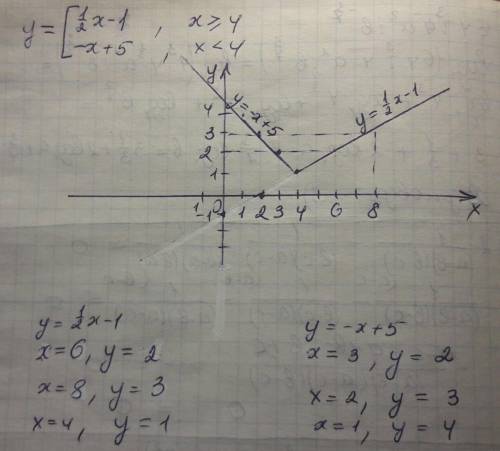 y = [ 1/2 x - 1 , x ≥ 4
-x + 5 , x < 4
y
4
3
2
1
y = -x + 5
y = 1/2 x - 1
1 0 1 2 3 4 6 8 x
-1
y = 1/2 x - 1
x = 6, y = 2
x = 8, y = 3
x = 4, y = 1
y = -x + 5
x = 3, y = 2
x = 2, y = 3
x = 1, y = 4